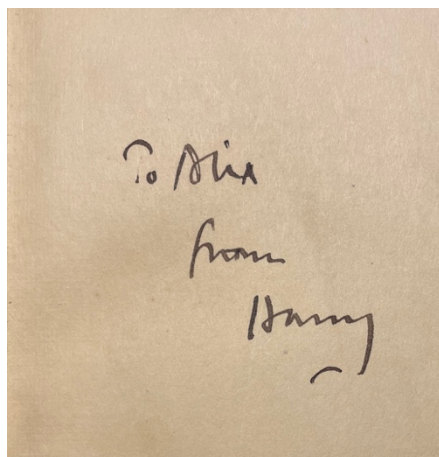 To Alix
from
Harry